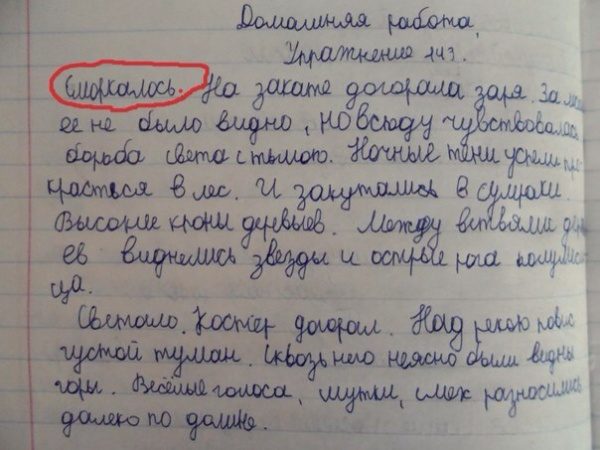 Домашняя работа,
Упражнение 143.
Сморкалось. На закате догорала заря. За
ее не было видно, но всюду чувствовалась
борьба света с тьмою. Ночные тени успели про
красться в лес. И закутались в сумраки.
Высокие кроны деревьев. Между ветвями дерев
ев виднелись звезды и острые рога полумеся
ца.
Светало. Костер догорал. Над рекою повис
густой туман. Сквозь него неясно были видны
горы. Весёлые голоса, шутки, смех разносились
далеко по долине.